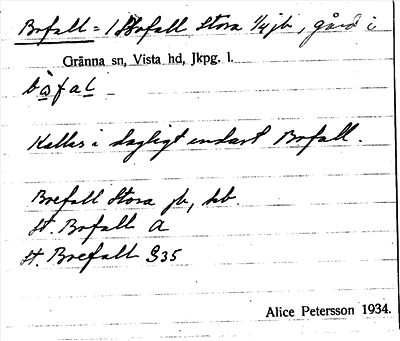 Bofall = / Bofall Stora 1/4 jb, gård i
Gränna sn, Vista hd, Jkpg. l.
bòfal
Kallas i dagligt endast Bofall.
Brefall Stora jb, hb.
St. Bofall A
St. Brefall G35
Alice Petersson 1934.